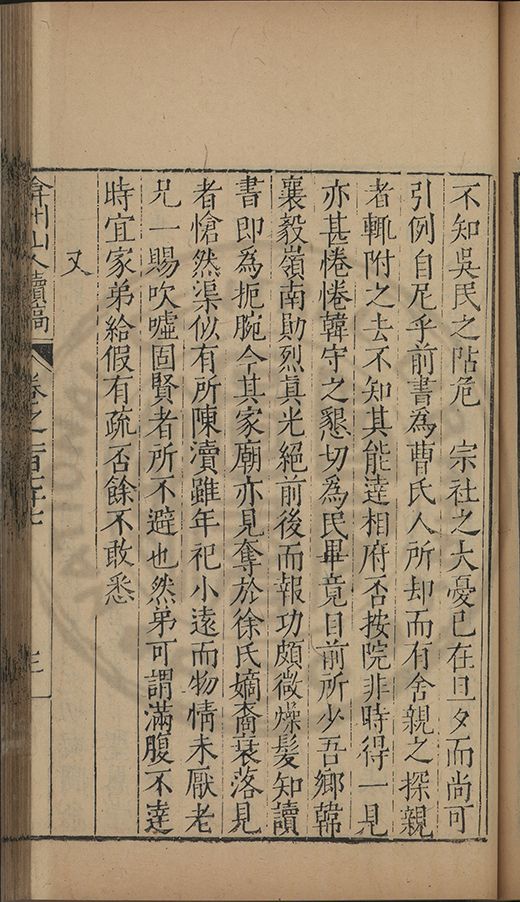 不知吳民之阽危　宗社之大憂已在旦夕而尚可
引例自足乎前書為曹氏人所却而有舍親之探親
者輒附之去不知其能達相府否按院非時得一見
亦甚惓惓韓守之懇切為民畢竟目前所少吾鄉韓
襄毅嶺南勛烈眞光絕前後而報功頗微燥髪知讀
書即為扼腕今其家廟亦見奪於徐氏嫡裔衰落見
者愴然渠似有所陳瀆雖年祀小遠而物情未厭老
兄一賜吹噓固賢者所不避也然弟可謂滿腹不達
時宜家弟給假有疏否餘不敢悉
又
弇州山人續稿
卷之一百